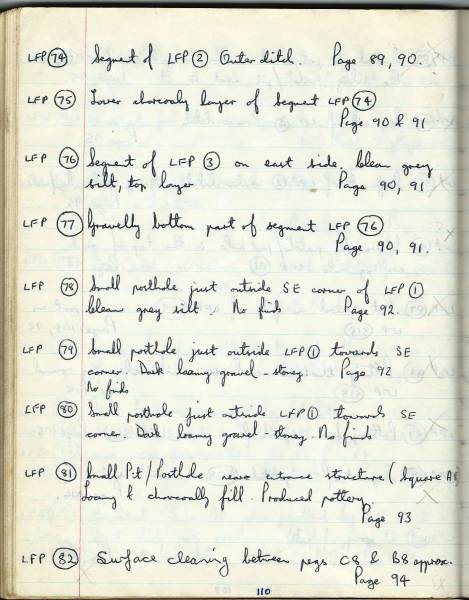 LFP (74) Segment of LFP (2) Outer ditch. Page 89, 90.
LFP (75) Lower charcoaly layer of Segment LFP (74)
Page 90 & 91
LFP (76) Segment of LFP (3) on east side. Clean grey
silt, top layer Page 90, 91
LFP (77) Gravelly bottom part of segment LFP (76)
Page 90, 91.
LFP (78) Small posthole just outside SE corner of LFP (1)
Clean grey silt. No finds Page 92.
LFP (79) Small posthole just outside LFP (1) towards SE
corner. Dark loamy gravel - stoney. Page 92
No finds
LFP (80) Small posthole just outside LFP (1) towards SE
corner. Dark loamy gravel - stoney. No finds
LFP (81) Small Pit / Posthole near entrance structure (Square A8
Loamy & charcoally fill. Produced pottery.
Page 93
LFP (82) Surface cleaning between pegs C8 & B8 approx.
Page 94
110